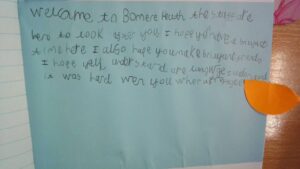 welcome to Bomere Heath the staff are
here to look after you I hope you have a brilliant
time here I also hope you make brilliant friends
I hope you understand are language
it was hard wen you